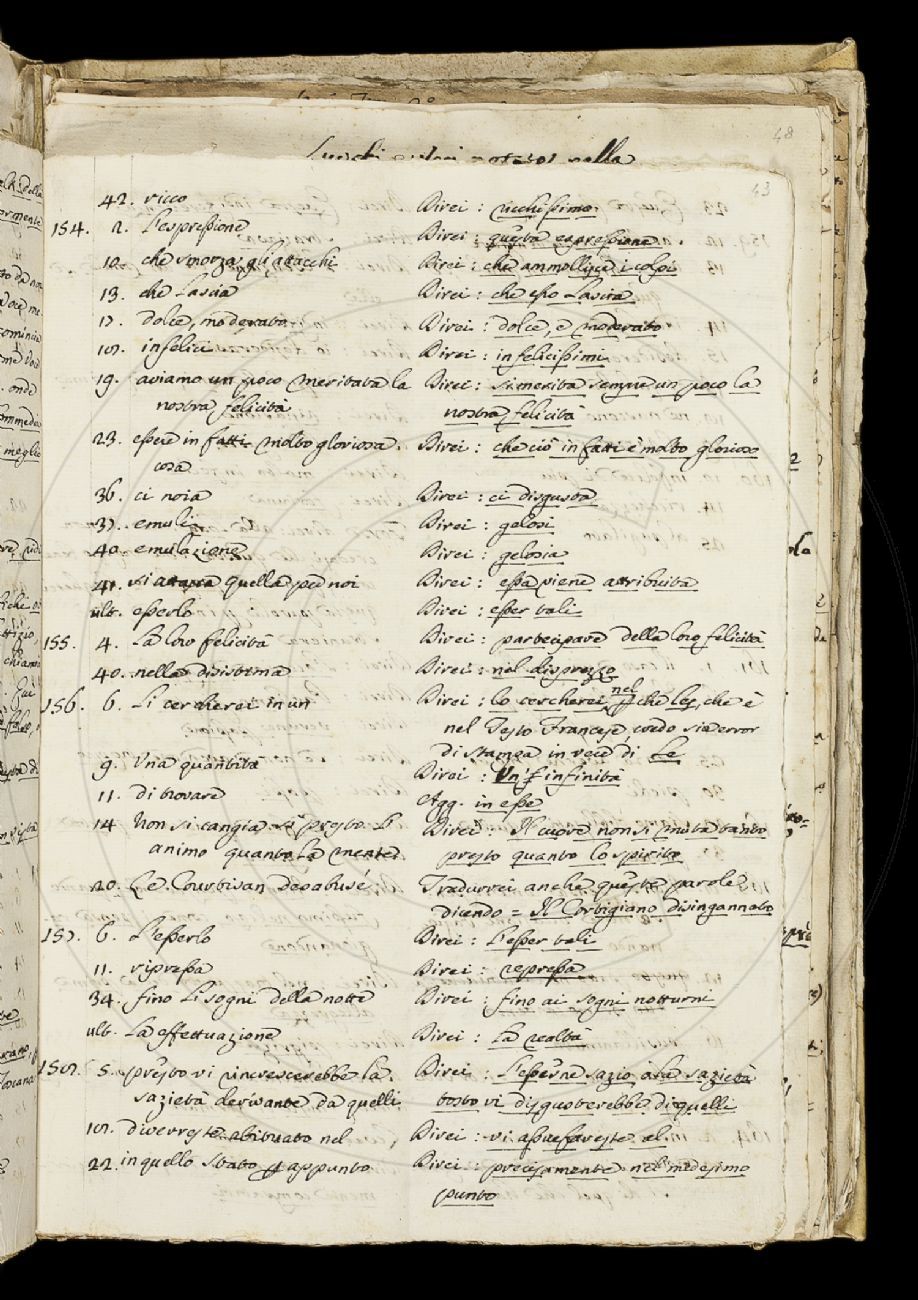 48
43
42. ricco Direi: ricchissimo
154. 2. L'espressione Direi: questa espressione
10. che smorza gli attacchi Direi: che ammollisce i colpi
13. che lascia Direi: che esso lascia
17. dolce, moderata Direi: dolce, e moderato
18. infelici Direi: infelicissimi
19. aviamo un poco meritata la Direi: si merita sempre un poco la
nostra felicità nostra felicità
23. essere in fatti molto gloriosa Direi: che ciò in fatti è molto glorioso
cosa
36. ci noia Direi: ci disgusta
37. emuli Direi: gelosi
40. emulazione Direi: gelosia
41. quella per noi Direi: essa viene attribuita
ult. esserlo Direi: esser tali
155. 4. La loro felicità Direi: partecipare della loro felicità
40. nella disistima Direi: nel disprezzo
156. 6. Li cercherei in un Direi: lo cercherei nel che les, che è
nel Testo Francese, credo sia error
di stampa in vece di Le
9. Una quantità Direi: Un' infinità
11. di trovare Agg. in esse
14 Non si cangia sì presto l' Direi: Il cuore non si muta tanto
animo quanto la mente presto quanto lo spirito
20. Le Courtisan desabusé Tradurrei anche queste parole
dicendo = Il Cortigiano disingannato
157. 6. L'esserlo Direi: L'esser tali
11. ripressa Direi: repressa
34. fino li sogni della notte Direi: fino ai sogni notturni
ult. La effettuazione Direi: La realtà
158. 5. presto vi rincrescerebbe la Direi: L'esserne sazio, o la sazietà
sazietà derivante da quelli tosto vi disgusterebbe di quelli
18. diverreste abituato nel Direi: vi assuefareste al
22. in quello stato appunto Direi: precisamente nel medesimo
punto